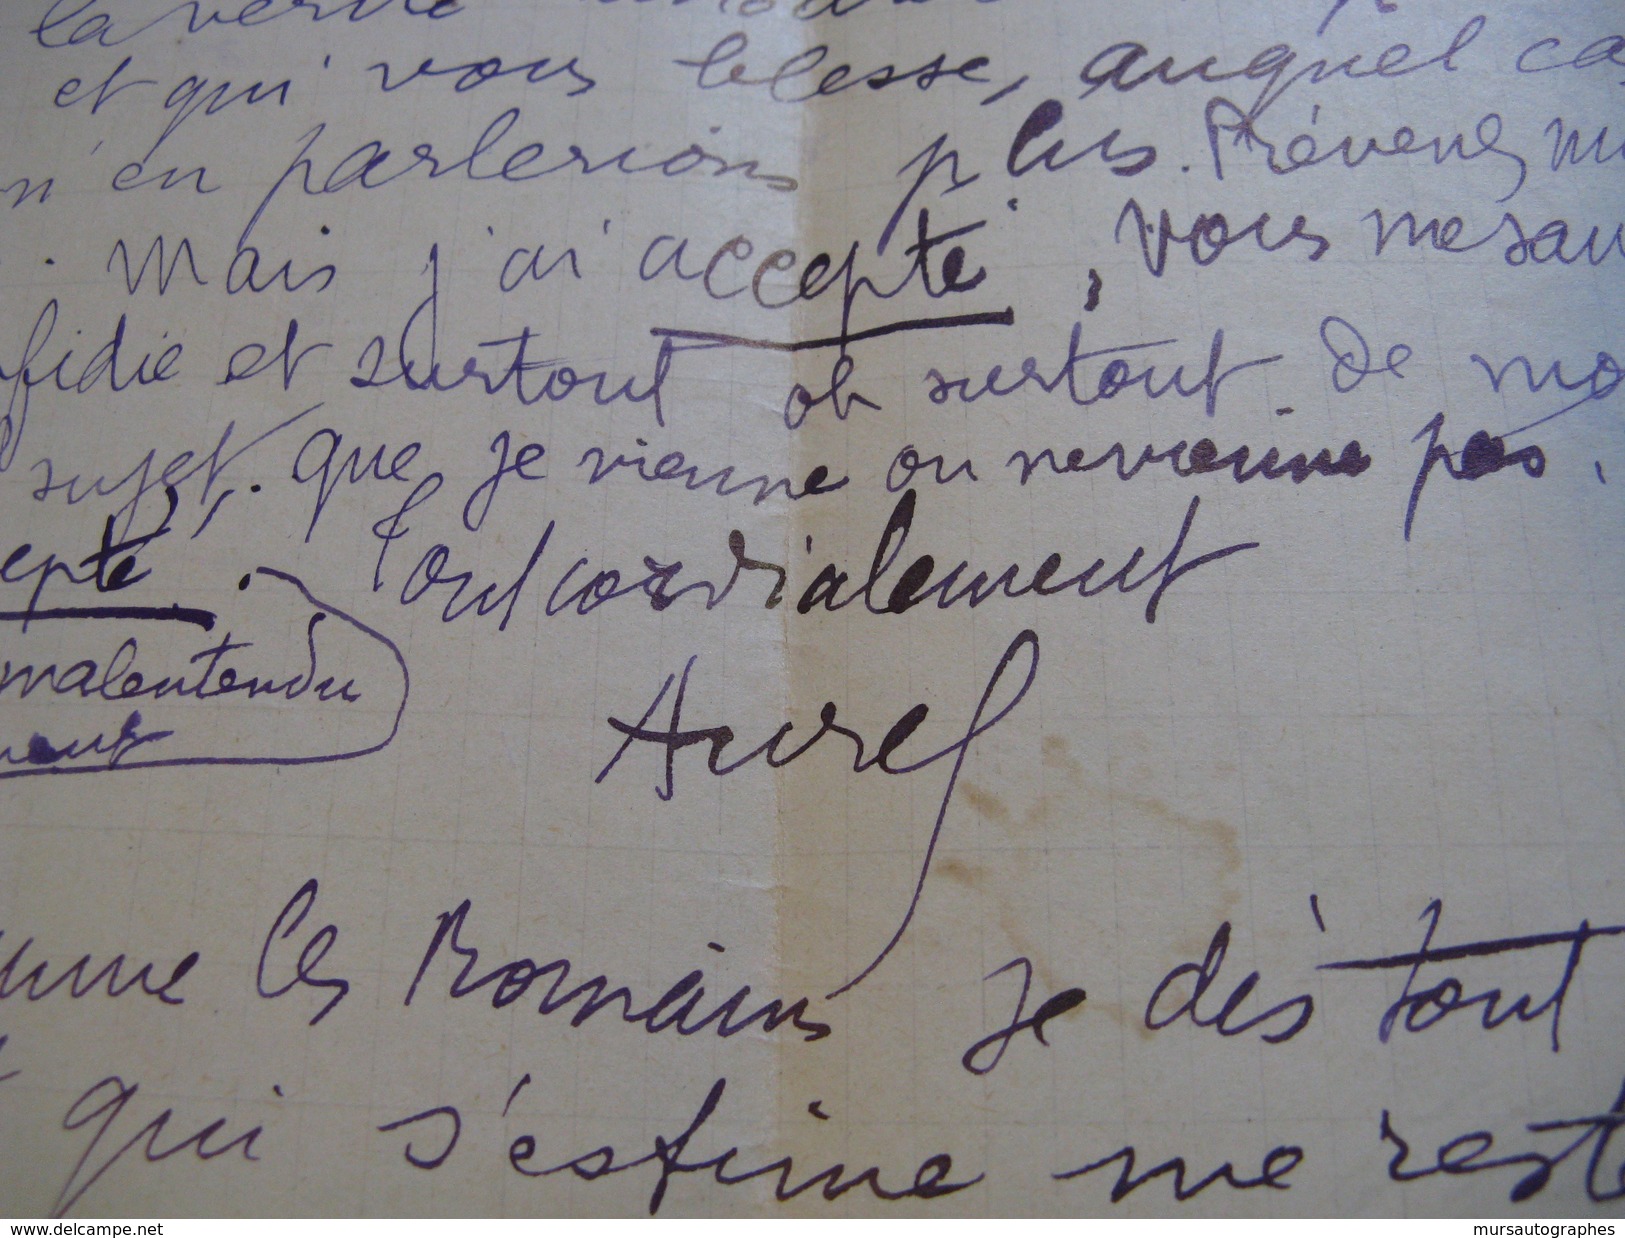 la verité
et qui vous blesse, auquel cas
n'en parlerions plus. Prévenez m
. Mais j'ai accepté, vous me sau
fidie et surtout oh surtout de mo
sujet. que je vienne ou ne vienne pas.
epté. Tout cordialement
malentendu
Aurel
mme les Romains je dès tout
qui s'estime me reste
www.delcampe.net
mursautographes